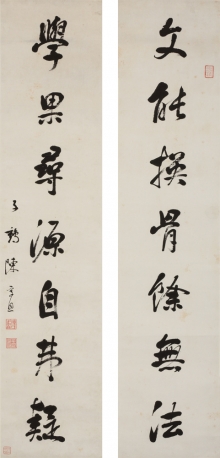 文能換骨餘無法
學果尋源自弗疑
子鶴陳孚恩